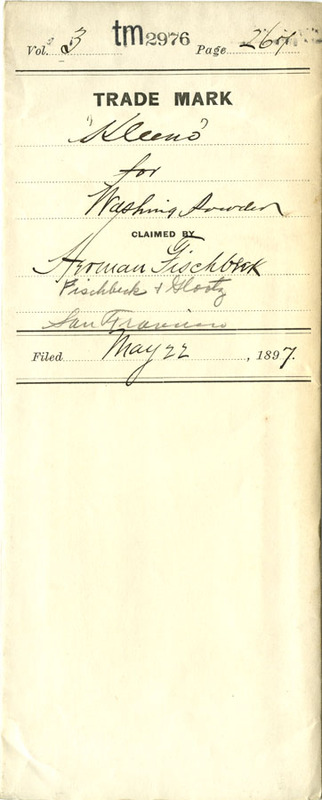 Vol. 3 tm2976 Page 267
TRADE MARK
"Kleeno"
for
Washing Powder
CLAIMED BY
Herman Fischbeck
Fischbeck & Glootz
San Francisco
Filed May 22, 1897.